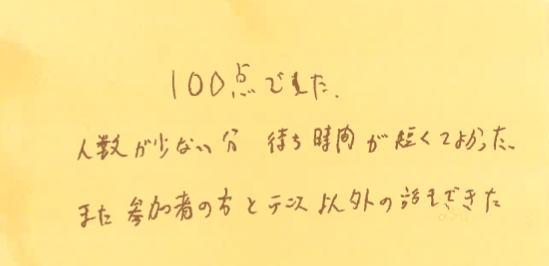 100点でした.
人数が少ない分 待ち時間が短くてよかった、
また 参加者の方とテニス以外の話もできた